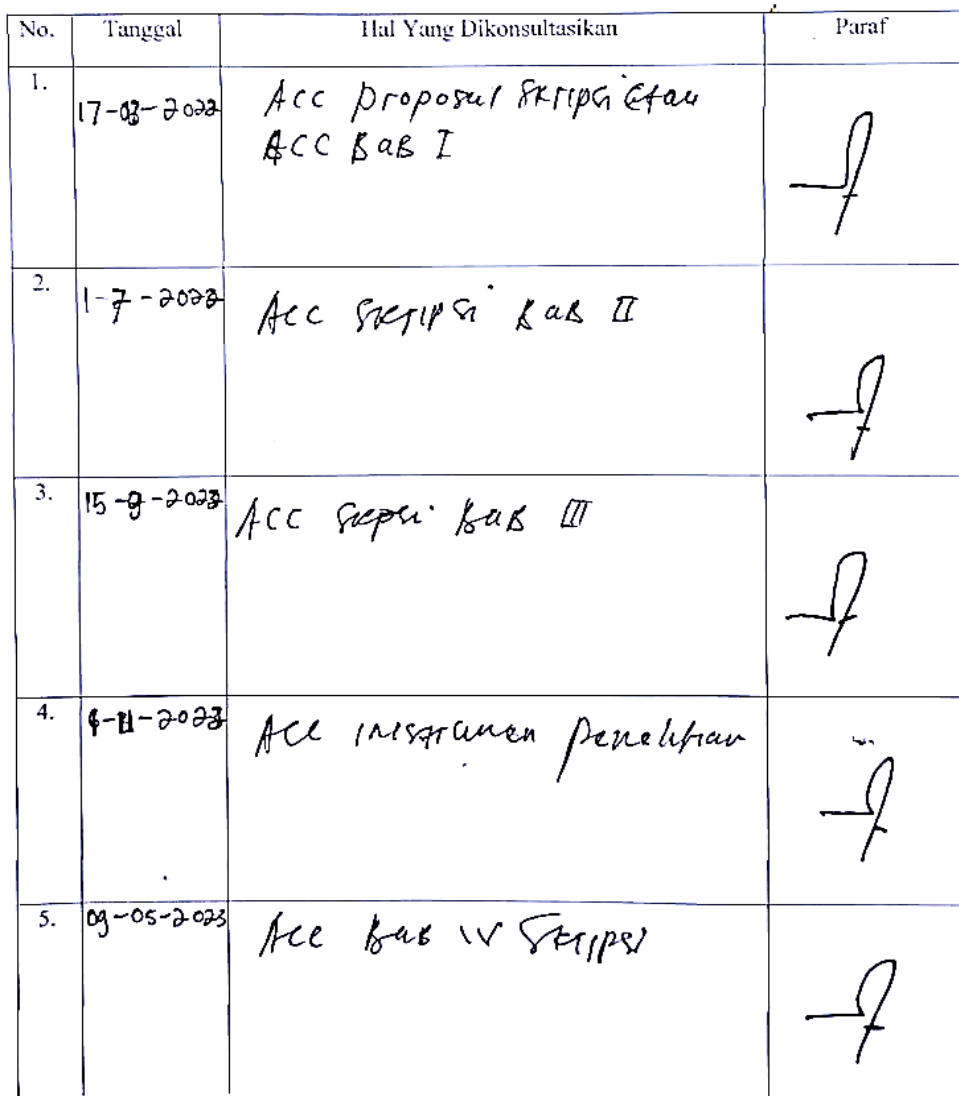 No. Tanggal Hal Yang Dikonsultasikan Paraf
1. 17-03-2022 ACC proposal Skripsi atau
ACC BaB I
2. 1-7-2022 Acc Skripsi BaB II
3. 15-9-2022 ACC Skripsi BaB III
4. Acc instrumen penelitian
5. 09-05-2023 Acc Bab IV Skripsi